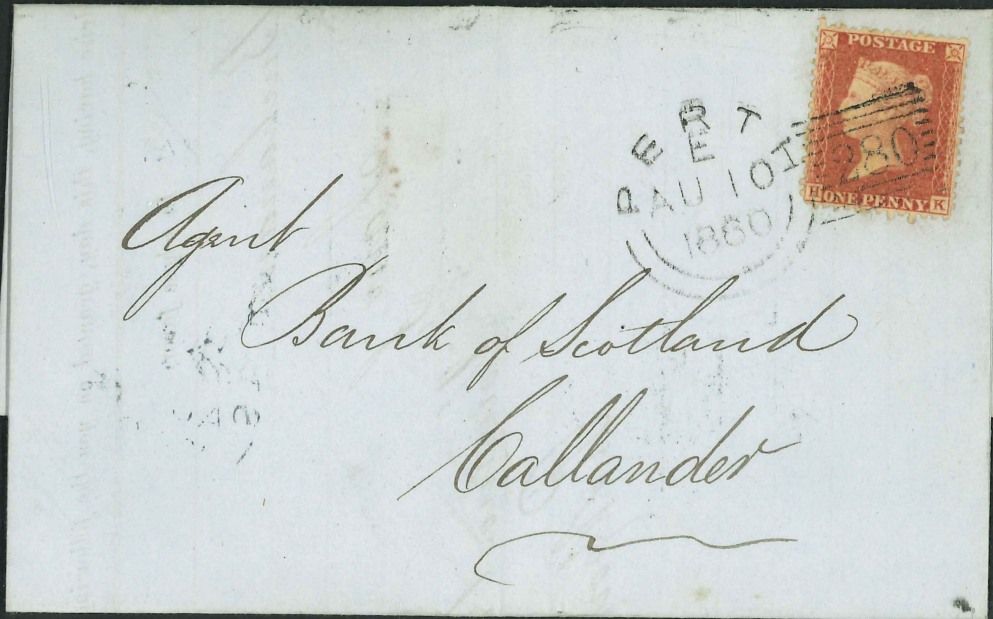 POSTAGE
280
H ONE PENNY K
PERTH
E
AU 10
1860
Agent
Bank of Scotland
Callander